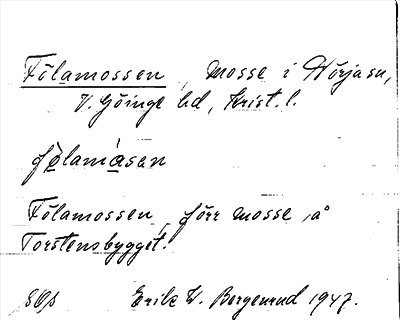 Fölamossen, mosse i Hörja sn,
V. Göinge hd, Krist. l.
fò̤lamá̤san
Fölamossen, förr mosse å
Torstensbygget.
Erik W. Bergenrud 1947.